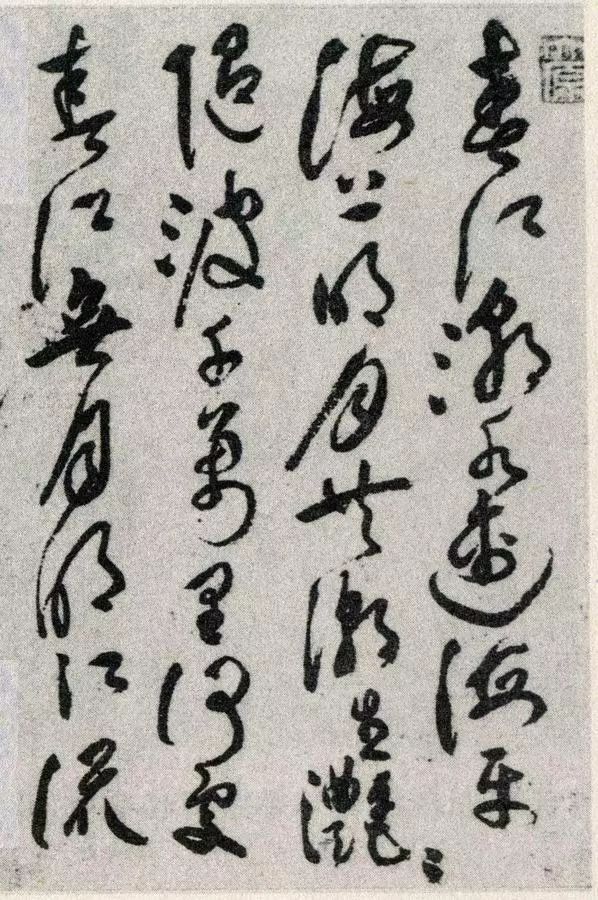 春江潮水連海平
海上明月共潮生灔〻
隨波千萬里何處
春江無月明江流